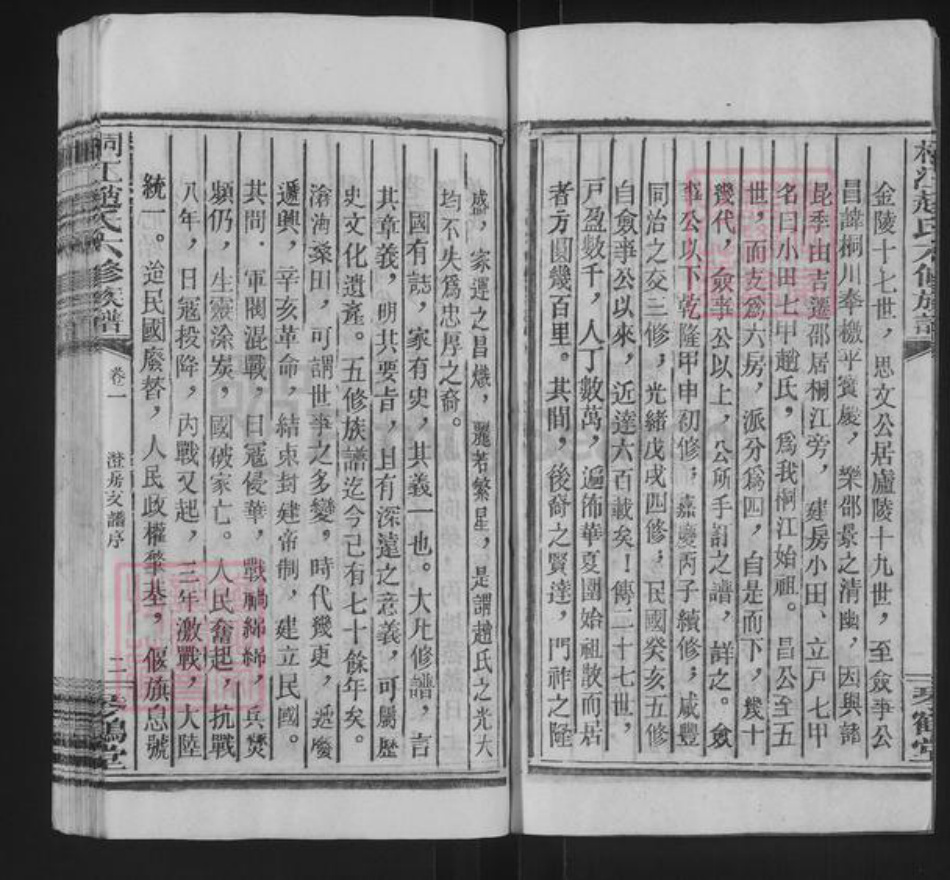 金陵十七世，思文公居廬陵十九世，至僉事公
昌諱桐川奉檄平賓慶，樂邵景之清幽，因與諸
昆季由吉遷邵居桐江旁，建房小田、立戸七甲
名曰小田七甲趙氏，爲我桐江始祖。昌公至五
世，而支爲六房，派分爲四，自是而下，幾十
幾代，僉事公以上，公所手訂之譜，詳之。僉
事公以下乾隆甲申初修；嘉慶丙子續修，咸豐
同治之交三修，光緒戊戌四修，民國癸亥五修
自僉事公以來，近達六百載矣！傳二十七世，
戸盈數千，人丁數萬，遍佈華夏團始祖散而居
者方圓幾百里。其間，後裔之賢達，門祚之隆
盛，家運之昌熾，麗若繁星，是謂趙氏之光大
均不失爲忠厚之裔。
國有誌，家有史，其義一也。大凡修譜，言
其章義，明其要旨，且有深遠之意義，可屬歷
史文化遺產。五修族譜迄今已有七十餘年矣。
滄海桑田，可謂世事之多變，時代幾更，遞廢
遞興，辛亥革命，結束封建帝制，建立民國。
其間．軍閥混戰，日冦侵華，戰禍綿綿，兵燹
頻仍，生靈涂炭，國破家亡。人民奮起，抗戰
八年，日寇投降，内戰又起，三年激戰，大陸
統一。迨民國廢替，人民政權奠基，偃旗息號
桐江趙氏六修族譜
卷一
澄房支譜序
二
琴鶴堂